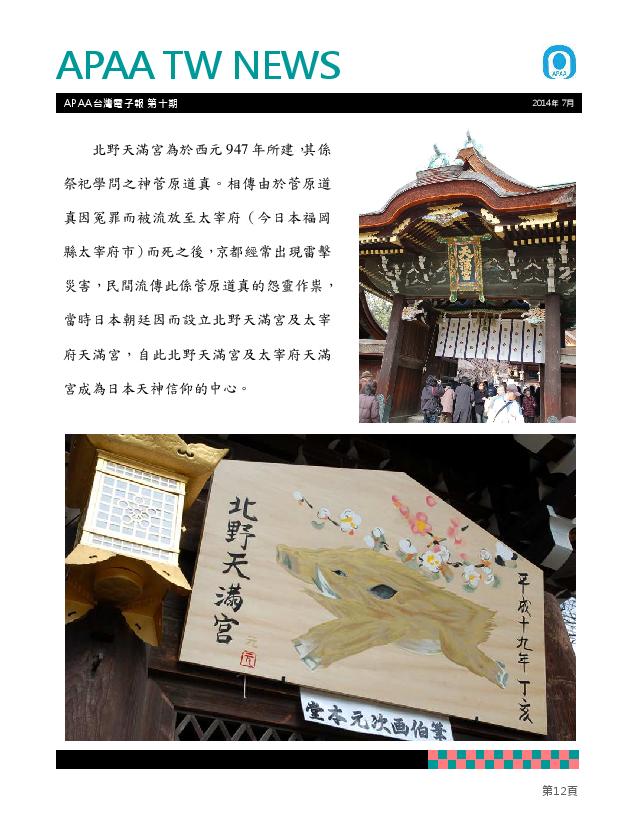 APAA TW NEWS
APAA
APAA台灣電子報 第十期
2014年 7月
北野天滿宮為於西元 947 年所建，其係
祭祀學問之神菅原道真。相傳由於菅原道
真因冤罪而被流放至太宰府（今日本福岡
縣太宰府市）而死之後，京都經常出現雷擊
災害，民間流傳此係菅原道真的怨靈作祟，
當時日本朝廷因而設立北野天滿宮及太宰
府天滿宮，自此北野天滿宮及太宰府天滿
宮成為日本天神信仰的中心。
天滿宮
北野天満宮
元
平成十九年丁亥
堂本元次画伯筆
第12頁